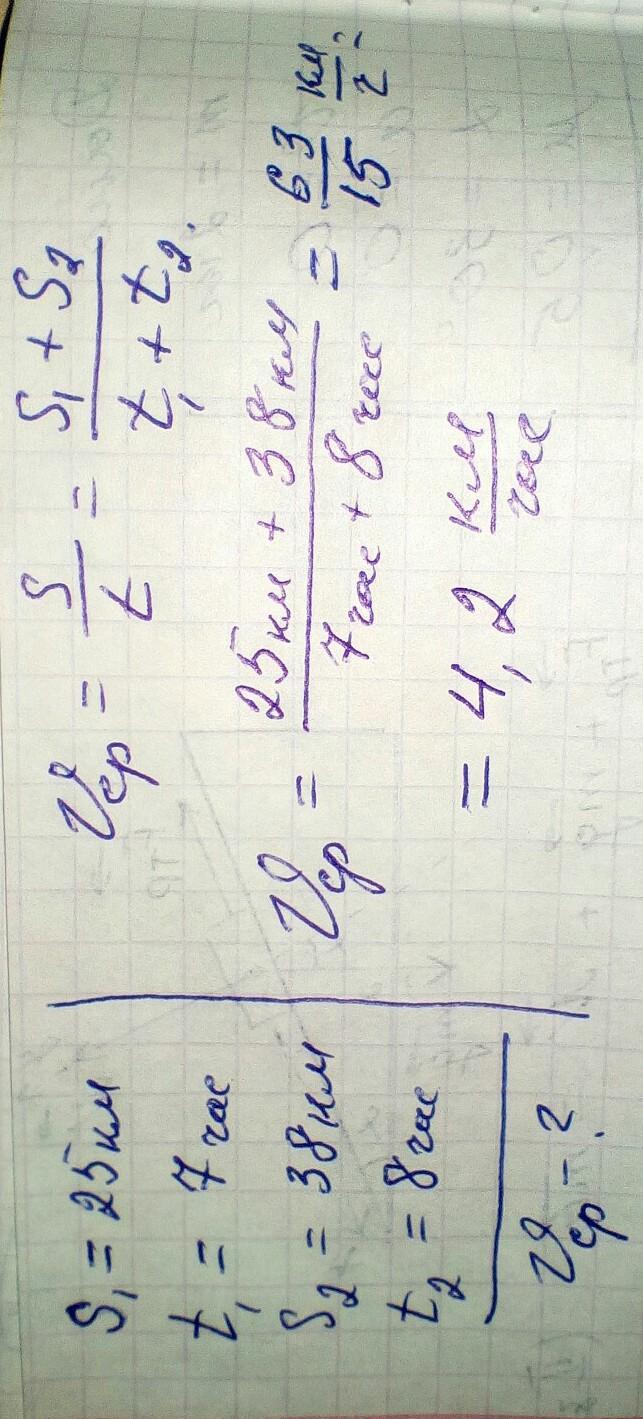 S₁ = 25 км
t₁ = 7 час
S₂ = 38 км
t₂ = 8 час
υср – ?
υср = S/t = (S₁ + S₂)/(t₁ + t₂)
υср = (25 км + 38 км)/(7 час + 8 час) = 63/15 км/ч =
= 4,2 км/час